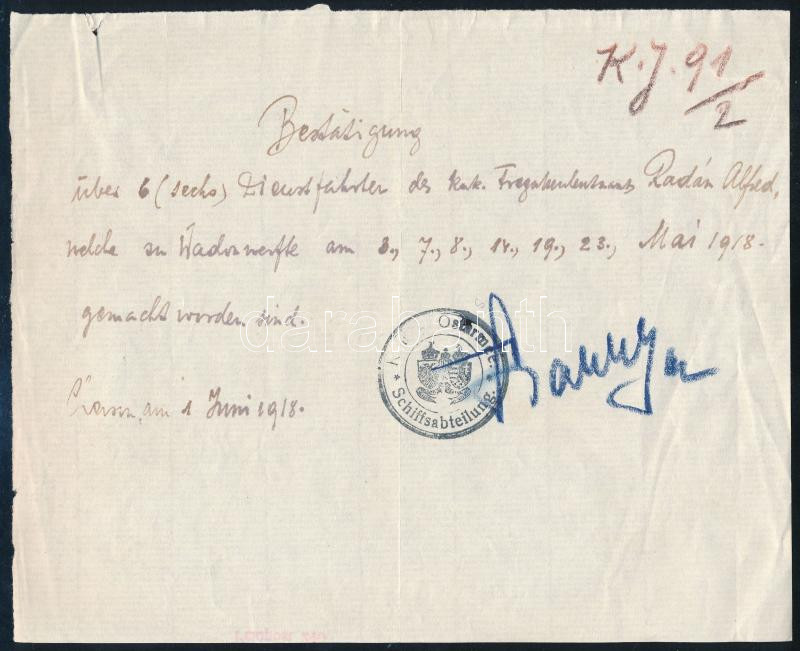 K. J. 91/2
Bestätigung
über 6 (sechs) Dienstfahrten des k.u.k. Fregattenleutnants Radán Alfred,
welche zu Wadonwerfte am 3., 7., 8., 14., 19., 23., Mai 1918.
gemacht worden sind.
darabanth
am 1 Juni 1918.
Schiffsabteilung